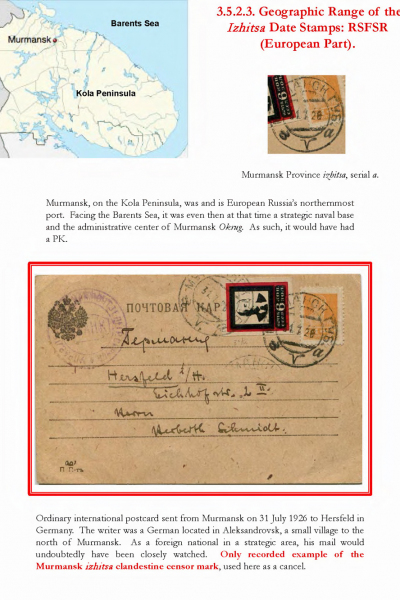 Barents Sea
Murmansk
Kola Peninsula
3.5.2.3. Geographic Range of the
Izhitsa Date Stamps: RSFSR
(European Part).
Murmansk Province izhitsa, serial a.
Murmansk, on the Kola Peninsula, was and is European Russia's northernmost
port. Facing the Barents Sea, it was even then at that time a strategic naval base
and the administrative center of Murmansk Okrug. As such, it would have had
a PK.
ПОЧТОВАЯ КАР
Германия
Hersfeld a/H.
Eichhofstr. 2 II.
Herrn
Herberth Schmidt.
Ordinary international postcard sent from Murmansk on 31 July 1926 to Hersfeld in
Germany. The writer was a German located in Aleksandrovsk, a small village to the
north of Murmansk. As a foreign national in a strategic area, his mail would
undoubtedly have been closely watched. Only recorded example of the
Murmansk izhitsa clandestine censor mark, used here as a cancel.